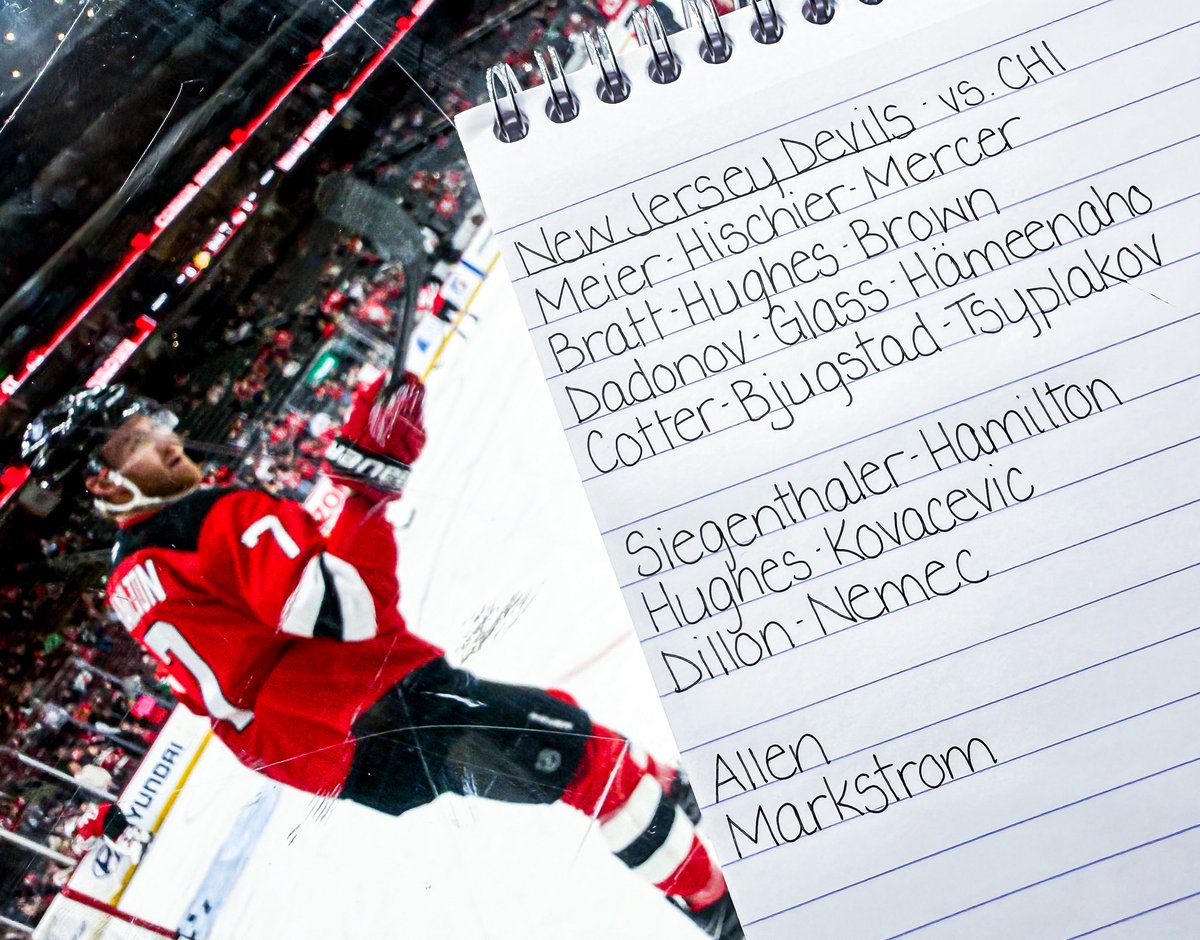 New Jersey Devils - vs. CHI
Meier - Hischier - Mercer
Bratt - Hughes - Brown
Dadonov - Glass - Hämeenaho
Cotter - Bjugstad - Tsyplakov
Siegenthaler - Hamilton
Hughes - Kovacevic
Dillon - Nemec
Allen
Markstrom
7
7
HYUNDAI